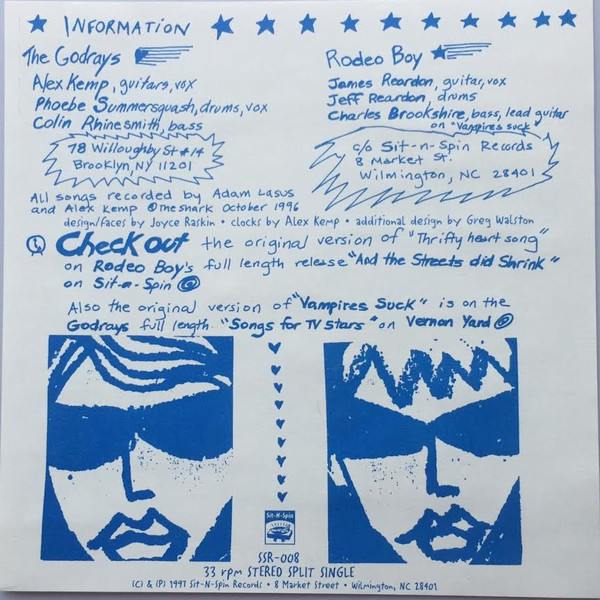 INFORMATION
The Godrays
Alex Kemp, guitars, vox
Phoebe Summersquash, drums, vox
Colin Rhinesmith, bass
78 Willoughby St #14
Brooklyn, NY 11201
Rodeo Boy
James Reardon, guitar, vox
Jeff Reardon, drums
Charles Brookshire, bass, lead guitar
on "Vampires suck"
c/o Sit-n-Spin Records
8 Market St.
Wilmington, NC 28401
All songs recorded by Adam Lasus
and Alex Kemp @ the shark October 1996
design/faces by Joyce Raskin • clocks by Alex Kemp • additional design by Greg Walston
Check out the original version of "Thrifty heart song"
on Rodeo Boy's full length release "And the Streets did Shrink"
on Sit-n-Spin
Also the original version of "Vampires Suck" is on the
Godrays full length "Songs for TV Stars" on Vernon Yard
Sit-N-Spin
SSR-008
33 rpm STEREO SPLIT SINGLE
(C) & (P) 1997 Sit-N-Spin Records • 8 Market Street • Wilmington, NC 28401